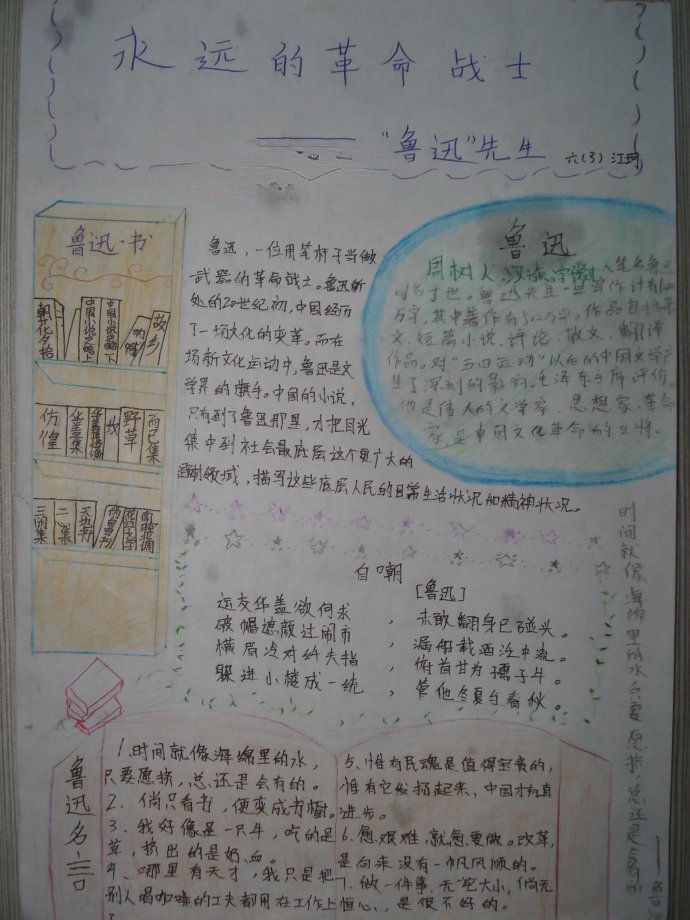 永远的革命战士
——“鲁迅”先生
六(3) 江珂
鲁迅·书
朝花夕拾
中国小说史略上
中国小说史略下
呐喊
故乡
仿惶
华盖集
坟
野草
而已集
三闲集
二心集
天边书
南腔北调
鲁迅，一位用笔杆子当做
武器的革命战士。鲁迅所
处的20世纪初，中国经历
了一场文化的变革。而在
场新文化运动中，鲁迅是文
学界的旗手。中国的小说，
只有到了鲁迅那里，才把目光
集中到社会最底层这个更广大的
领域，描写这些底层人民的日常生活状况和精神状况。
鲁迅
周树人，
以笔名鲁迅
闻名于世。鲁迅先生一生写作计有600
万字，其中著作有500万字。作品包括杂
文、短篇小说、评论、散文、翻译
作品。对“五四运动”以后的中国文学产
生了深刻的影响。毛泽东主席评价
他是伟大的文学家、思想家、革命
家是中国文化革命的主将。
自嘲
[鲁迅]
运交华盖欲何求，未敢翻身已碰头。
破帽遮颜过闹市，漏船载酒泛中流。
横眉冷对千夫指，俯首甘为孺子牛。
躲进小楼成一统，管他冬夏与春秋。
时间就像海绵里的水只要愿挤，总还是会有的
——鲁迅
鲁迅名言
1、时间就像海绵里的水，
只要愿挤，总还是会有的。
2、倘只看书，便变成书橱。
3、我好像是一只牛，吃的是
草，挤出的是奶、血。
4、哪里有天才，我只是把
别人喝咖啡的工夫都用在工作上
了
5、惟有民魂是值得宝贵的，
惟有它发扬起来、中国才有真
进步。
6、愈艰难，就愈要做。改革，
是向来没有一帆风顺的。
7、做一件事，无论大小，倘无
恒心，是很不好的。